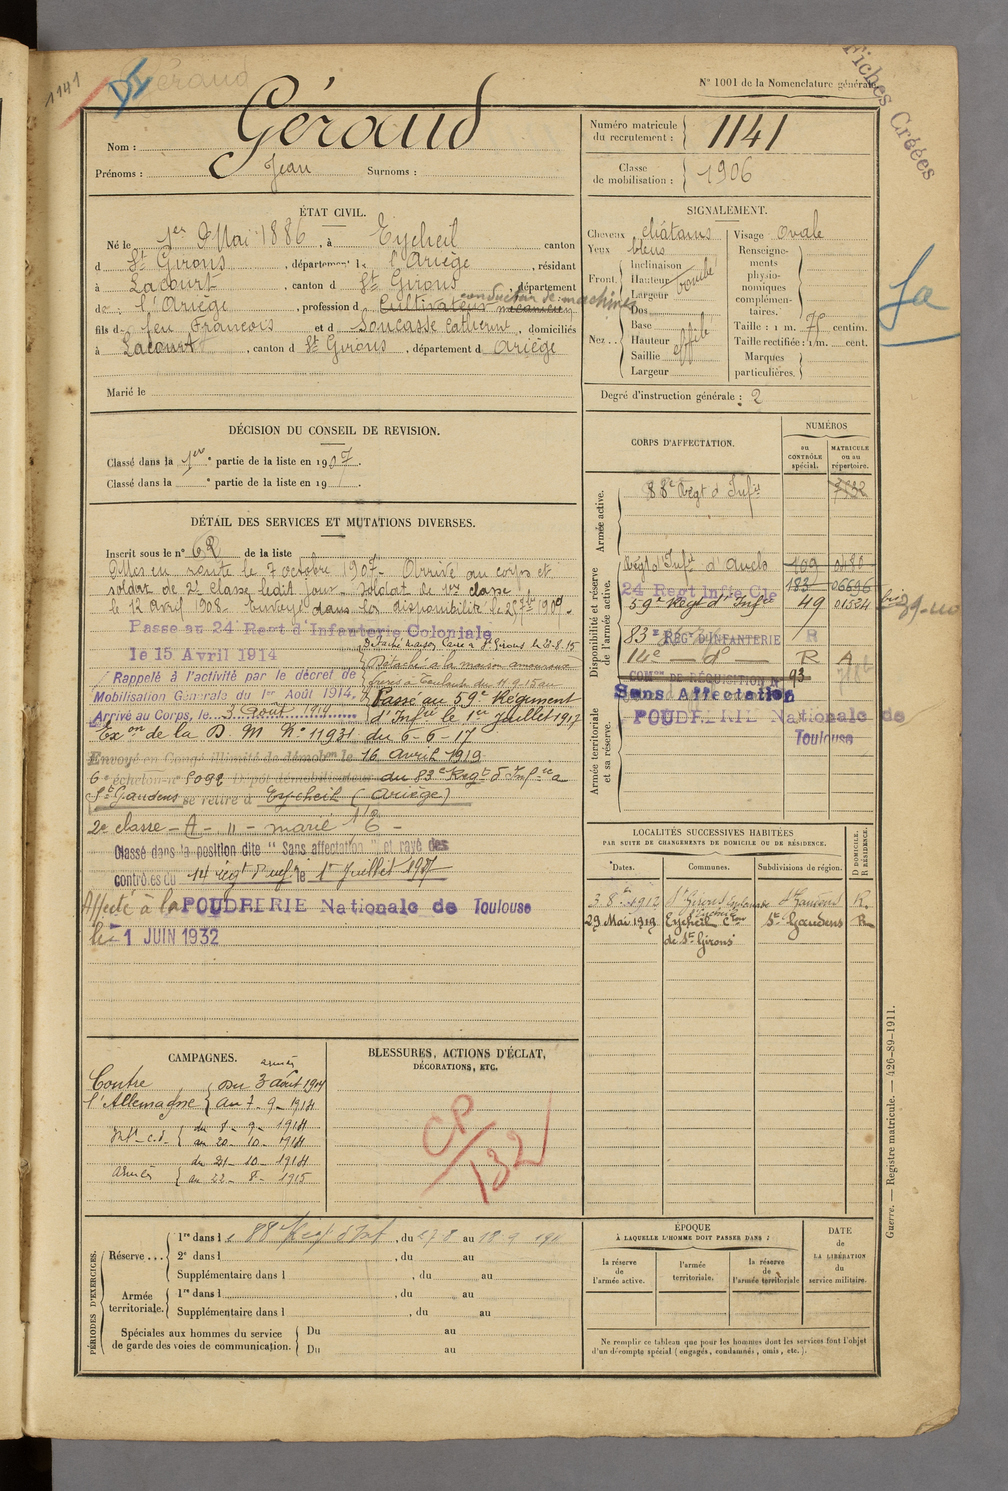 1141
Géraud
N° 1001 de la Nomenclature générale
Fiches Créées
Nom : Géraud
Prénoms : Jean Surnoms :
Numéro matricule du recrutement : 1141
Classe de mobilisation : 1906
ÉTAT CIVIL.
Né le 1er Mai 1886, à Eycheil canton
d St Girons, département de l'Ariège, résidant
à Lacourt, canton d St Girons, département
de l'Ariège, profession d Cultivateur mécanicien conducteur de machines
fils de feu François et d Soucasse Catherine, domiciliés
à Lacourt, canton d St Girons, département d Ariège
Marié le
SIGNALEMENT.
Cheveux châtains
Yeux bleus
Front Inclinaison
Hauteur
Largeur
Nez Dos
Base
Hauteur effilé
Saillie
Largeur
Visage Ovale
Renseignements physionomiques complémentaires.
Taille : 1 m. 75 centim.
Taille rectifiée : 1 m. cent.
Marques particulières.
Degré d'instruction générale : 2
DÉCISION DU CONSEIL DE REVISION.
Classé dans la 1er e partie de la liste en 1907.
Classé dans la e partie de la liste en 19 .
DÉTAIL DES SERVICES ET MUTATIONS DIVERSES.
Inscrit sous le n° 62 de la liste
Mis en route le 7 octobre 1907. Arrivé au corps et
soldat de 2e classe ledit jour. Soldat de 1re classe
le 12 avril 1908. Envoyé dans la disponibilité le 25 7bre 1909.
Passe au 24 Regt d'Infanterie Coloniale
le 15 Avril 1914
Détaché maison
Détaché à la maison
frères à Toulouse du 11-9-15 au
Rappelé à l'activité par le décret de
Mobilisation Générale du 1er Août 1914.
Arrivé au Corps, le 3 Août 1914
Passé au 59e Régiment
d'Infie le 1er Juillet 1917
Exon de la D. M. N° 11931 du 6-6-17
Envoyé en Congé illimité de démobon le 16 Avril 1919.
6e échelon n° 5092 Dépôt démobilisateur du 83e Regt d'Infie à
St Gaudens se retire à Eycheil (Ariège)
2e classe - A - " - marié 1 E -
Classé dans la position dite "Sans affectation" et rayé des
contrôles du 14 régt d'inf. le 1er Juillet 1927
Affecté à la POUDRERIE Nationale de Toulouse
le -1 JUIN 1932
CORPS D'AFFECTATION.
NUMÉROS
au CONTRÔLE spécial.
MATRICULE ou au répertoire.
Armée active.
88e Régt d'Infie
Disponibilité et réserve de l'armée active.
Régt d'Infie d'Auch 109 0480
24 Regt Infie Cle 183 06696
59e Régt d'Infie 49 01524
83e REGt D'INFANTERIE R
14e — do — R A
COMon DE RÉQUISITION N° 93
Sans Affectation
POUDRERIE Nationale de
Toulouse
Armée territoriale et sa réserve.
LOCALITÉS SUCCESSIVES HABITÉES
PAR SUITE DE CHANGEMENTS DE DOMICILE OU DE RÉSIDENCE.
Dates. Communes. Subdivisions de région. D DOMICILE. R RÉSIDENCE.
3 8bre 1912 St Girons St Gaudens R.
29 Mai 1919 Eycheil Cton de St Girons St Gaudens R
CAMPAGNES.
Contre l'Allemagne
armées
du 3 août 1914
au 7 - 9 - 1914
Int. c.d.
du 8 - 9 - 1914
au 20 - 10 - 1914
armées
du 21 - 10 - 1914
au 22 - 8 - 1915
BLESSURES, ACTIONS D'ÉCLAT,
DÉCORATIONS, ETC.
CP/132
PÉRIODES D'EXERCICES.
Réserve ... 1re dans l e 88e Regt d'Inf, du 27 8 au 18 9 191
2e dans l , du au
Supplémentaire dans l , du au
Armée territoriale. 1re dans l , du au
Supplémentaire dans l , du au
Spéciales aux hommes du service
de garde des voies de communication.
Du au
Du au
ÉPOQUE
À LAQUELLE L'HOMME DOIT PASSER DANS :
la réserve de l'armée active.
l'armée territoriale.
la réserve de l'armée territoriale
DATE de LA LIBÉRATION du service militaire.
Ne remplir ce tableau que pour les hommes dont les services font l'objet
d'un décompte spécial (engagés, condamnés, omis, etc.).
Guerre. — Registre matricule. — 426-89-1911.